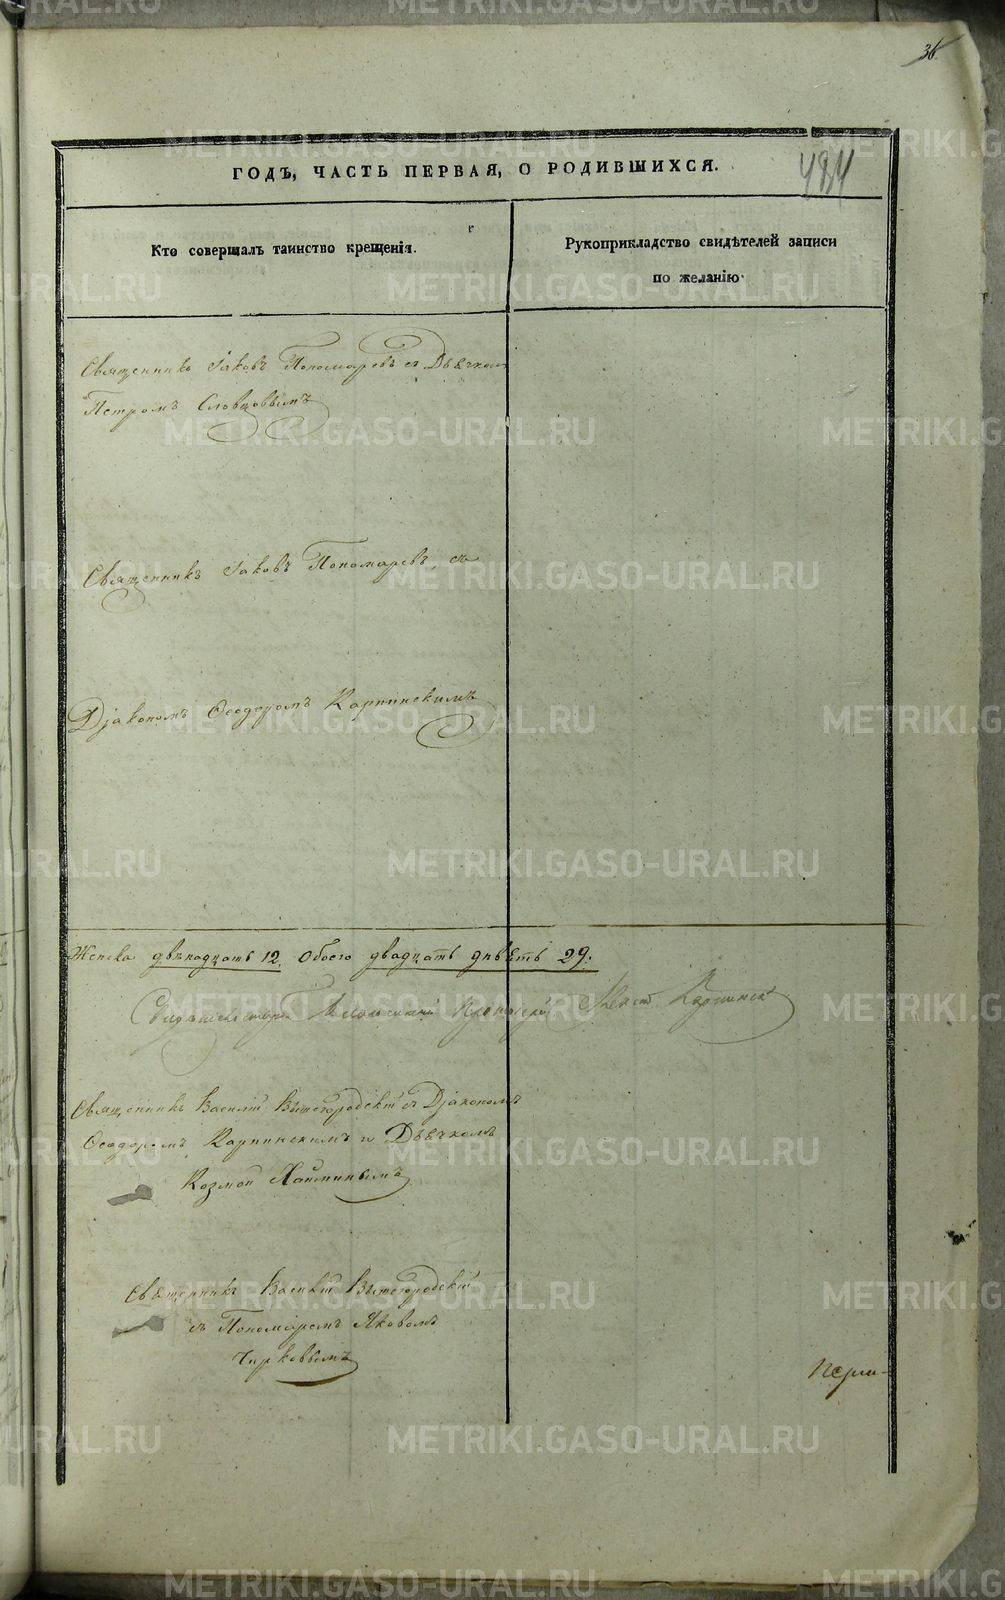 36
484
ГОДЪ, ЧАСТЬ ПЕРВАЯ, О РОДИВШИХСЯ.
Кто совершалъ таинство крещенія.
Рукоприкладство свидѣтелей записи
по желанію
Священникъ Іаковъ Пономаревъ съ Дьячкомъ
Петромъ Словцовымъ
Священникъ Іаковъ Пономаревъ, съ
Діакономъ Ѳеодоромъ Карпинскимъ
Женска двѣнадцать 12. Обоего двадцать дѣвѣть 29.
Протоіерей
Священникъ Василій Вышегородскій съ Діакономъ
Ѳеодоромъ Карпинскимъ и Дьячкомъ
Козмой
Священникъ Василій Вышегородскій
съ Пономаремъ Яковомъ
Чирковымъ
METRIKI.GASO-URAL.RU